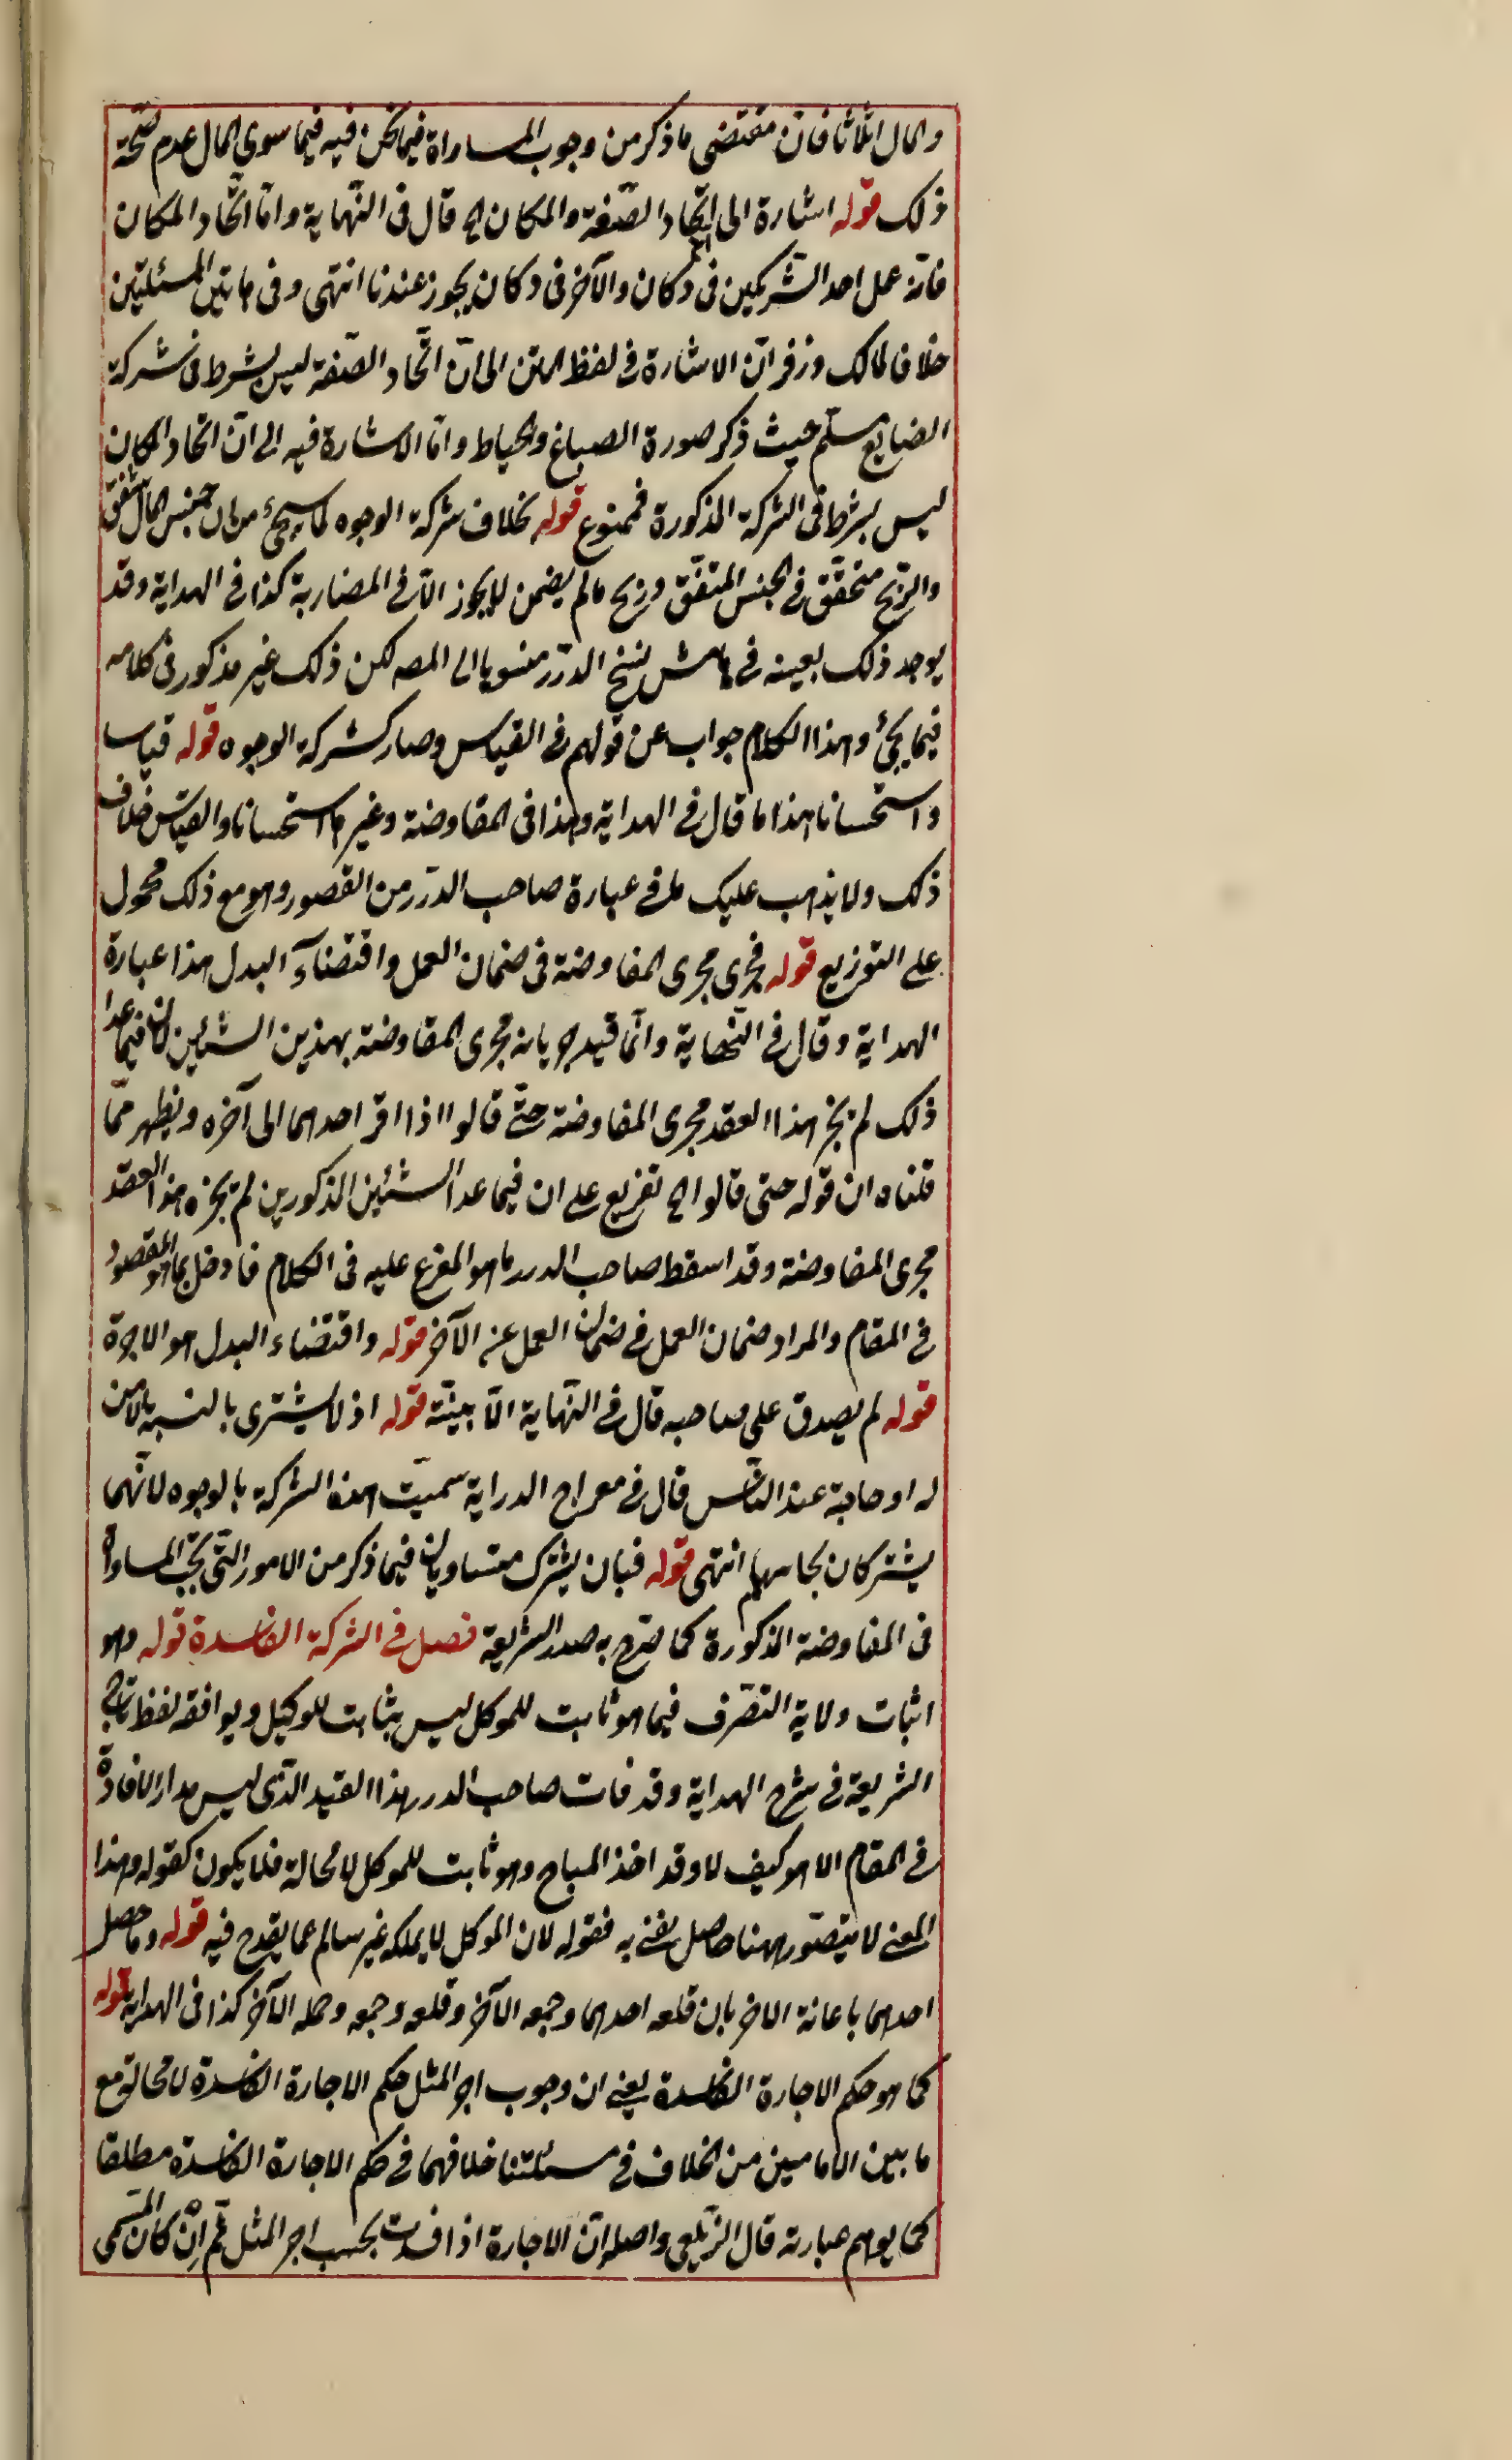 والمال اثلاثا فان مقتضى ما ذكر من وجوب المساواة فيما نحن فيه فيما سوى المال عدم صحة
ذلك قوله اشارة الى اتحاد الصنعة والمكان الخ قال فى النهاية واما اتحاد المكان
فانه عمل احد الشريكين فى دكان والآخر فى دكان يجوز عندنا انتهى وفى هاتين المسئلتين
خلافا لمالك وزفر ان الاشارة فى لفظ المتن الى ان اتحاد الصنعة ليس بشرط فى شركة
الصنايع مسلم حيث ذكر صورة الصباغ والخياط واما الاشارة فيه الى ان اتحاد المكان
ليس بشرط فى الشركة المذكورة فممنوع قوله بخلاف شركة الوجوه كما سيجئ من ان جنس المال متفق
والربح متحقق فى الجنس المتفق وربح ما لم يضمن لا يجوز الا فى المضاربة كذا فى الهداية وقد
يوجد ذلك بعينه فى هامش نسخ الدرر منسوبا الى المصه لكن ذلك غير مذكور فى كلامه
فيما يجئ وهذا الكلام جواب عن قولهم فى القياس وصار كشركة الوجوه قوله قياسا
واستحسانا هذا ما قال فى الهداية وهذا فى المفاوضة وغيرها استحسانا والقياس خلاف
ذلك ولا يذهب عليك ما فى عبارة صاحب الدرر من القصور وهو مع ذلك محمول
على التوزيع قوله فجرى مجرى المفاوضة فى ضمان العمل واقتضآء البدل هذا عبارة
الهداية وقال فى النهاية وانما قيد جريانه مجرى المفاوضة بهذين الشيئين لان فيما عدا
ذلك لم يجز هذا العقد مجرى المفاوضة حتى قالوا اذا اقر احدهما الى آخره ويظهر مما
قلناه ان قوله حتى قالوا الخ تفريع على ان فيما عدا الشيئين المذكورين لم يجزه هذا العقد
مجرى المفاوضة وقد اسقط صاحب الدرر ما هو المفرع عليه فى الكلام فاوخل بما هو المقصود
فى المقام والمراد ضمان العمل فى ضمان العمل عن الآخر قوله واقتضاء البدل هو الاجرة
قوله لم يصدق على صاحبه قال فى النهاية الا ببينة قوله اذ لا يشترى بالنسيئة الا من
له اوصاحبة عند الناس قال فى معراج الدراية سميت هذه الشركة بالوجوه لانهما
يشتركان بجاههما انتهى قوله فبان يشترك متساويان فيما ذكر من الامور التى يجب المساواة
فى المفاوضة المذكورة كما صرح به صدر الشريعة فصل فى الشركة الفاسدة قوله وهو
اثبات ولاية التصرف فيما هو ثابت للموكل ليس بثابت للوكيل ويوافقه لفظ تاج
الشريعة فى شرح الهداية وقد فات صاحب الدرر هذا القيد الذى ليس مدار الافادة
فى المقام الا هو كيف لا وقد اخذ المباح وهو ثابت للموكل لا محالة فلا يكون كقوله وهذا
المعنى لا يتصور ههنا حاصل يعنى به فقوله لان الموكل لا يملكه غير سالم عما يقدح فيه قوله وما حصل
احدهما باعانة الاخر بان قلعه احدهما وجمعه الآخر وقلعه وجمعه وحمله الآخر كذا فى الهداية قوله
كما هو حكم الاجارة الفاسدة يعنى ان وجوب اجر المثل حكم الاجارة الفاسدة لا محالة مع
ما بين الامامين من الخلاف فى مسئلتنا خلافهما فى حكم الاجارة الفاسدة مطلقا
كما يوهم عبارته قال الزيلعى واصله ان الاجارة اذا فسدت يجب اجر المثل ثم ان كان المسمى